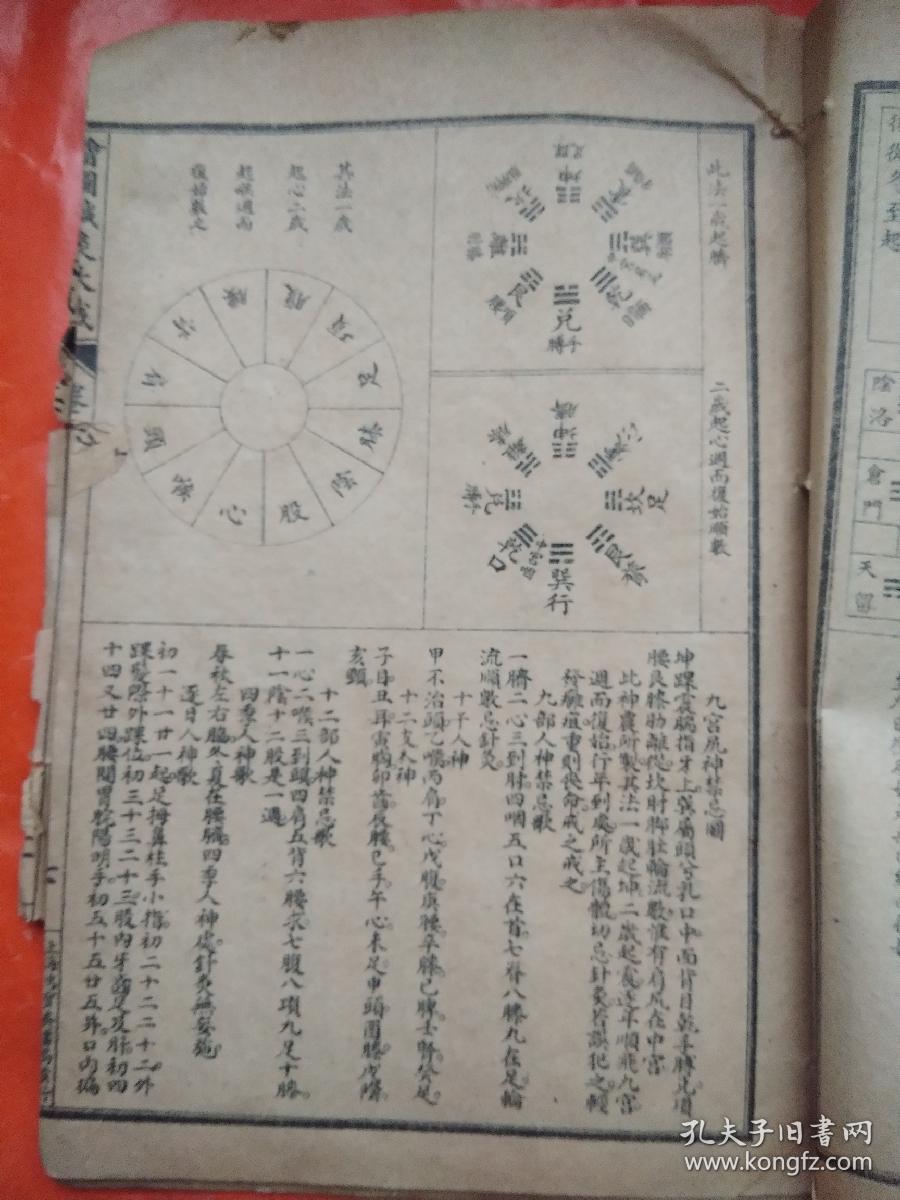 此法一歲起臍
二歲起心週而復始順數
坤踝
震
巽
乾
兌手膊
艮腰項
離
坎
坎足
艮
巽行
乾口
兌
離
坤
震
其法一歲
起心二歲
起喉週而
復始數之
心
股
陰
膝
足
項
腹
腰
背
肩
頭
喉
九宮尻神禁忌圖
坤踝震腨指牙上巽屬頭兮乳口中面背目乾手膊兌項
腰艮膝肋離從坎肘脚肚輪流數惟有肩尻在中宮
此神農所製其法一歲起坤二歲起震逐年順飛九宮
週而復始行年到處所主傷體切忌針灸若誤犯之輕
發癰疽重則喪命戒之戒之
九部人神禁忌歌
一臍二心三到肘四咽五口六在首七脊八膝九在足輪
流順數忌針灸
十干人神
甲不治頭乙喉丙肩丁心戊腹庚腰辛膝己脾壬腎癸足
十二支人神
子目丑耳寅胸卯齒辰腰巳手午心未足申頭酉膝戌陰
亥頸
十二部人神禁忌歌
一心二喉三到頭四肩五背六腰求七腹八項九足十膝
十一陰十二股是一週
四季人神歌
春秋左右脇冬夏在腰臍四季人神處針灸無妄施
逐日人神歌
初一十一廿一起足拇鼻柱手小指初二十二二十二外
踝髮際外踝位初三十三二十三股內牙齒足及肝初四
十四又廿四腰間胃脘陽明手初五十五廿五并口內徧
繪圖鍼灸大成
陰洛
倉門
天留
孔夫子旧書网
www.kongfz.com